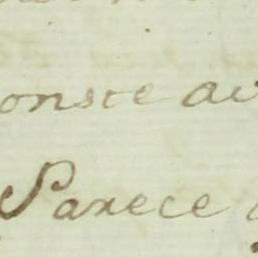 onste av
Parece